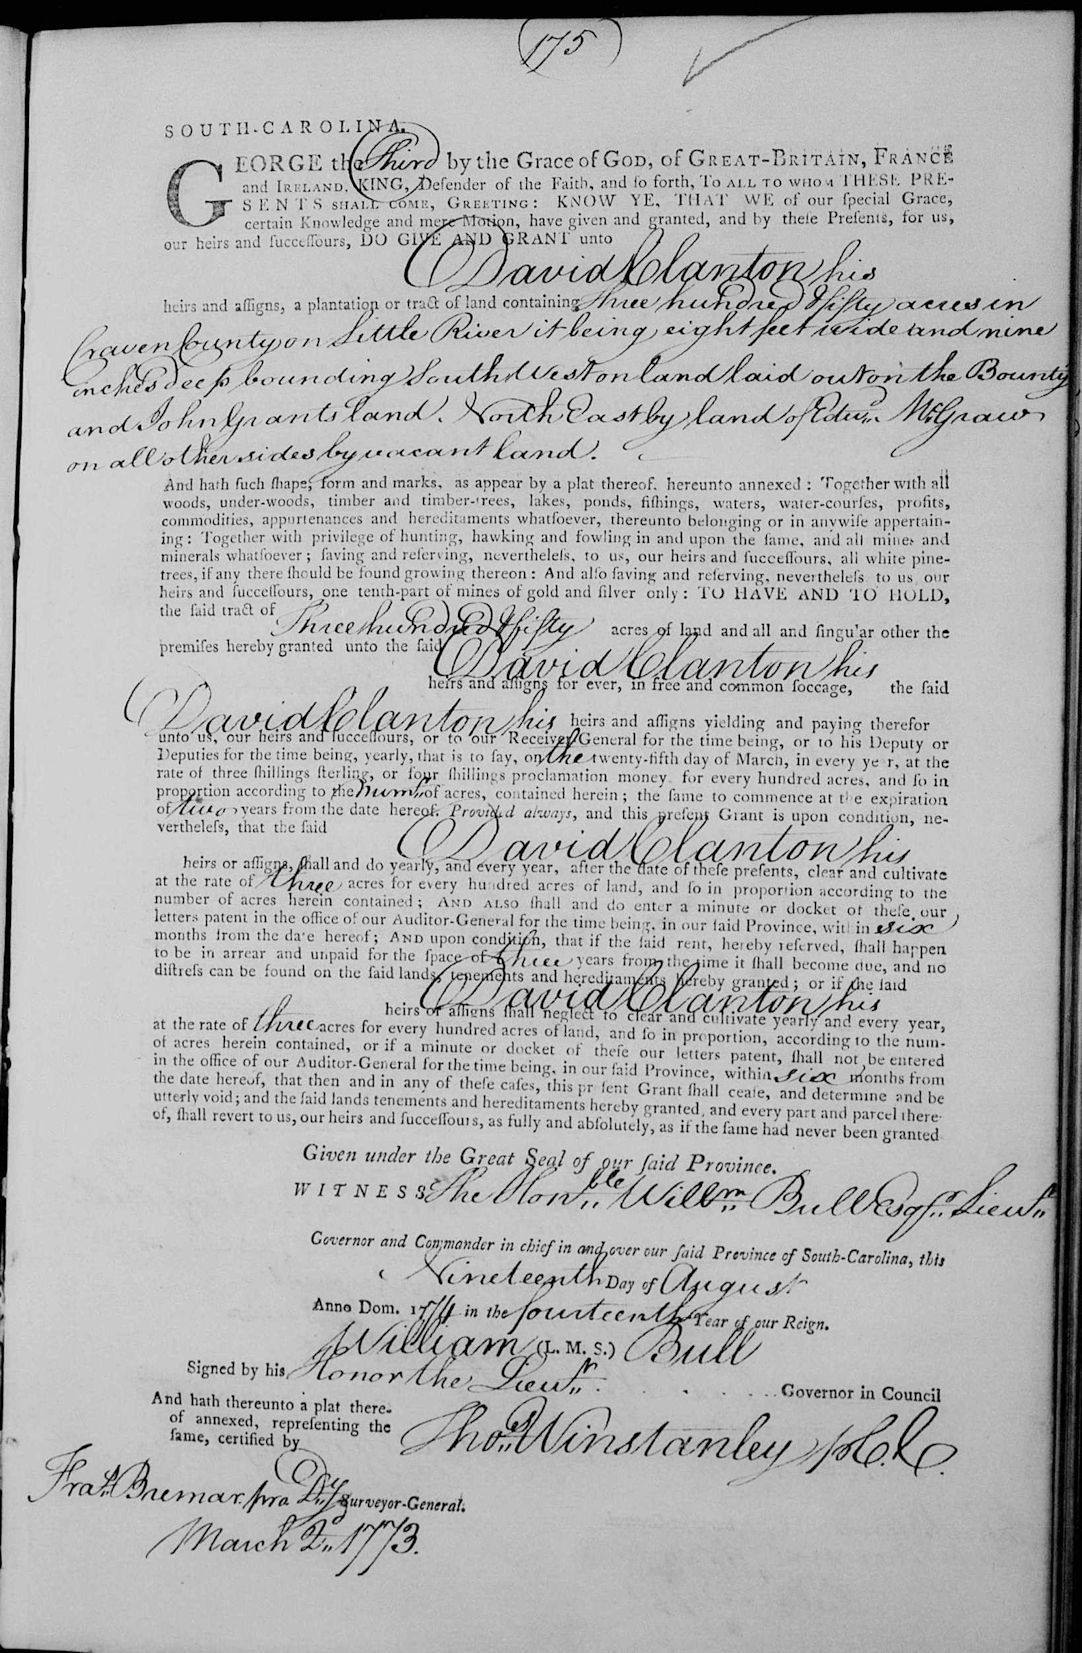 (175)
SOUTH-CAROLINA.
GEORGE the Third by the Grace of GOD, of GREAT-BRITAIN, FRANCE
and IRELAND, KING, Defender of the Faith, and ſo forth, TO ALL TO WHOM THESE PRE-
SENTS SHALL COME, GREETING: KNOW YE, THAT WE of our ſpecial Grace,
certain Knowledge and mere Motion, have given and granted, and by theſe Preſents, for us,
our heirs and ſucceſſours, DO GIVE AND GRANT unto
David Clanton his
heirs and aſſigns, a plantation or tract of land containing three hundred & fifty acres in
Craven County on Little River it being eight feet wide and nine
inches deep bounding South West on land laid out on the Bounty
and John Grants land. North East by land of Edwd. McGraw
on all other sides by vacant land.
And hath ſuch ſhape, form and marks, as appear by a plat thereof, hereunto annexed: Together with all
woods, under-woods, timber and timber-trees, lakes, ponds, fiſhings, waters, water-courſes, profits,
commodities, appurtenances and hereditaments whatſoever, thereunto belonging or in anywiſe appertain-
ing: Together with privilege of hunting, hawking and fowling in and upon the ſame, and all mines and
minerals whatſoever; ſaving and reſerving, nevertheleſs, to us, our heirs and ſucceſſours, all white pine-
trees, if any there ſhould be found growing thereon: And alſo ſaving and reſerving, nevertheleſs to us our
heirs and ſucceſſours, one tenth-part of mines of gold and ſilver only: TO HAVE AND TO HOLD,
the ſaid tract of Three hundred & fifty acres of land and all and ſingular other the
premiſes hereby granted unto the ſaid David Clanton his
heirs and aſſigns for ever, in free and common ſoccage, the ſaid
David Clanton his heirs and aſſigns yielding and paying therefor
unto us, our heirs and ſucceſſours, or to our Receiver General for the time being, or to his Deputy or
Deputies for the time being, yearly, that is to ſay, on the twenty-fifth day of March, in every year, at the
rate of three ſhillings ſterling, or four ſhillings proclamation money for every hundred acres, and ſo in
proportion according to the Numr. of acres, contained herein; the ſame to commence at the expiration
of two years from the date hereof. Provided always, and this preſent Grant is upon condition, ne-
vertheleſs, that the ſaid David Clanton his
heirs or aſſigns, ſhall and do yearly, and every year, after the date of theſe preſents, clear and cultivate
at the rate of three acres for every hundred acres of land, and ſo in proportion according to the
number of acres herein contained; AND ALSO ſhall and do enter a minute or docket of theſe our
letters patent in the office of our Auditor-General for the time being, in our ſaid Province, within six
months from the date hereof; AND upon condition, that if the ſaid rent, hereby reſerved, ſhall happen
to be in arrear and unpaid for the ſpace of three years from the time it ſhall become due, and no
diſtreſs can be found on the ſaid lands, tenements and hereditaments hereby granted; or if the ſaid
David Clanton his
heirs or aſſigns ſhall neglect to clear and cultivate yearly and every year,
at the rate of three acres for every hundred acres of land, and ſo in proportion, according to the num-
of acres herein contained, or if a minute or docket of theſe our letters patent, ſhall not be entered
in the office of our Auditor-General for the time being, in our ſaid Province, within six months from
the date hereof, that then and in any of theſe caſes, this preſent Grant ſhall ceaſe, and determine and be
utterly void; and the ſaid lands tenements and hereditaments hereby granted, and every part and parcel there-
of, ſhall revert to us, our heirs and ſucceſſours, as fully and abſolutely, as if the ſame had never been granted
Given under the Great Seal of our ſaid Province.
WITNESS The Honble. Willm. Bull Esqr. Lieut.
Governor and Commander in chief in and over our ſaid Province of South-Carolina, this
Nineteenth Day of August
Anno Dom. 1774 in the fourteenth Year of our Reign.
William (L. M. S.) Bull
Signed by his Honor the Lieut. Governor in Council
And hath thereunto a plat there-
of annexed, repreſenting the
ſame, certified by
Thos. Winstanley p C. C.
Fras. Bremar pro Dy. Surveyor-General.
March 2d. 1773.